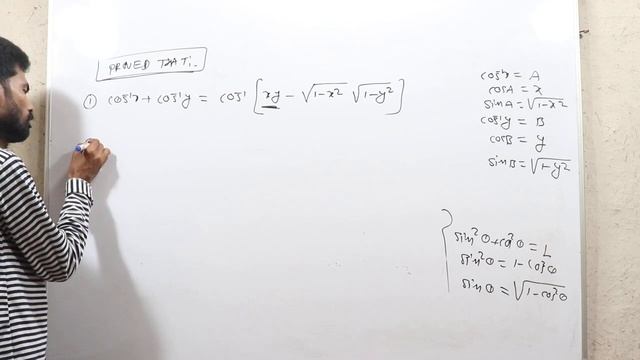 PROVED THAT:
① cos⁻¹x + cos⁻¹y = cos⁻¹ [xy - √1-x² √1-y²]
cos⁻¹x = A
cosA = x
sinA = √1-x²
cos⁻¹y = B
cosB = y
sinB = √1-y²
sin²θ + cos²θ = 1
sin²θ = 1 - cos²θ
sinθ = √1-cos²θ